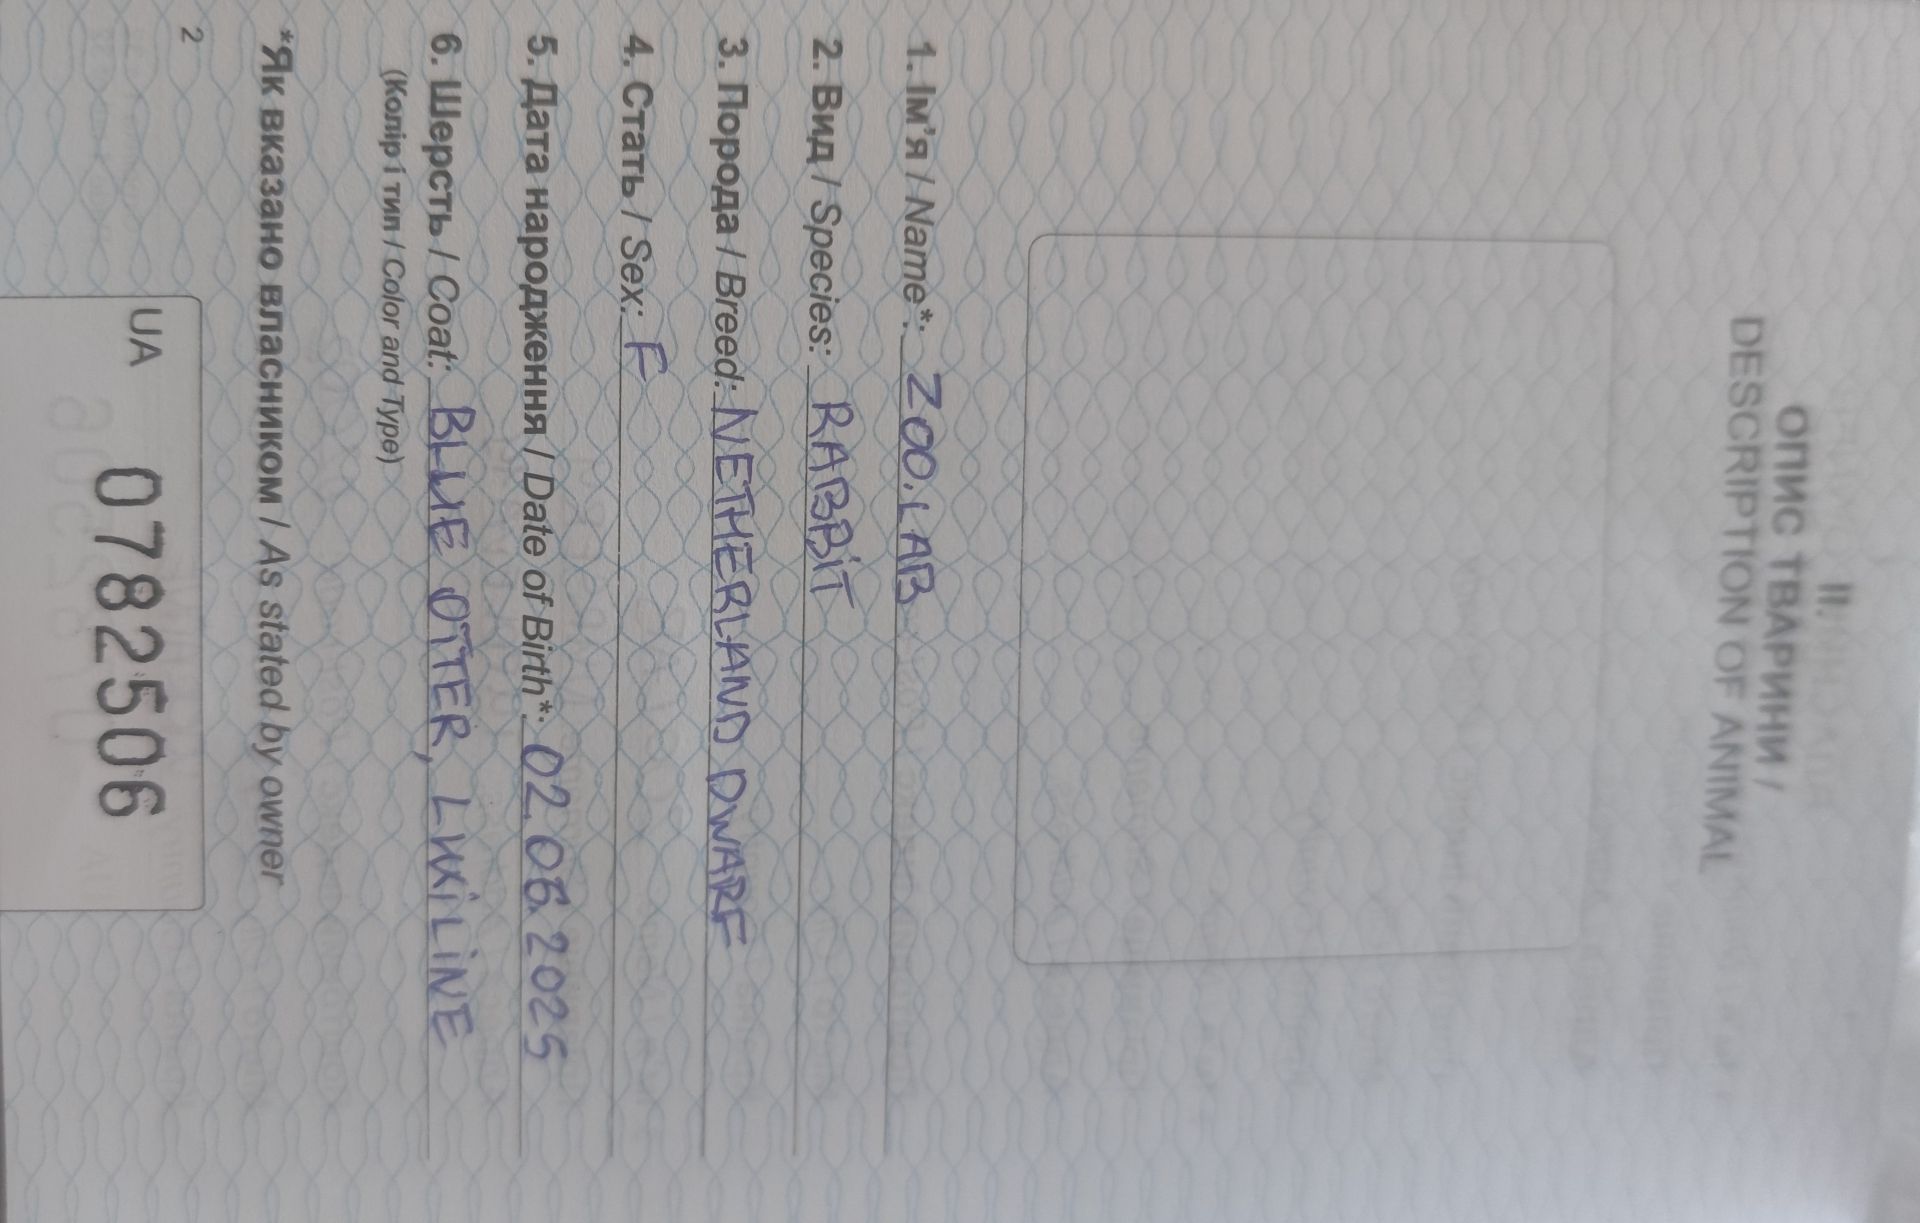 II.
ОПИС ТВАРИНИ /
DESCRIPTION OF ANIMAL
1. Ім'я / Name*: ZOO.LAB
2. Вид / Species: RABBIT
3. Порода / Breed: NETHERLAND DWARF
4. Стать / Sex: F
5. Дата народження / Date of Birth*: 02.06.2025
6. Шерсть / Coat: BLUE OTTER, LUXILINE
(Колір і тип / Color and Type)
*Як вказано власником / As stated by owner
2
UA 0782506